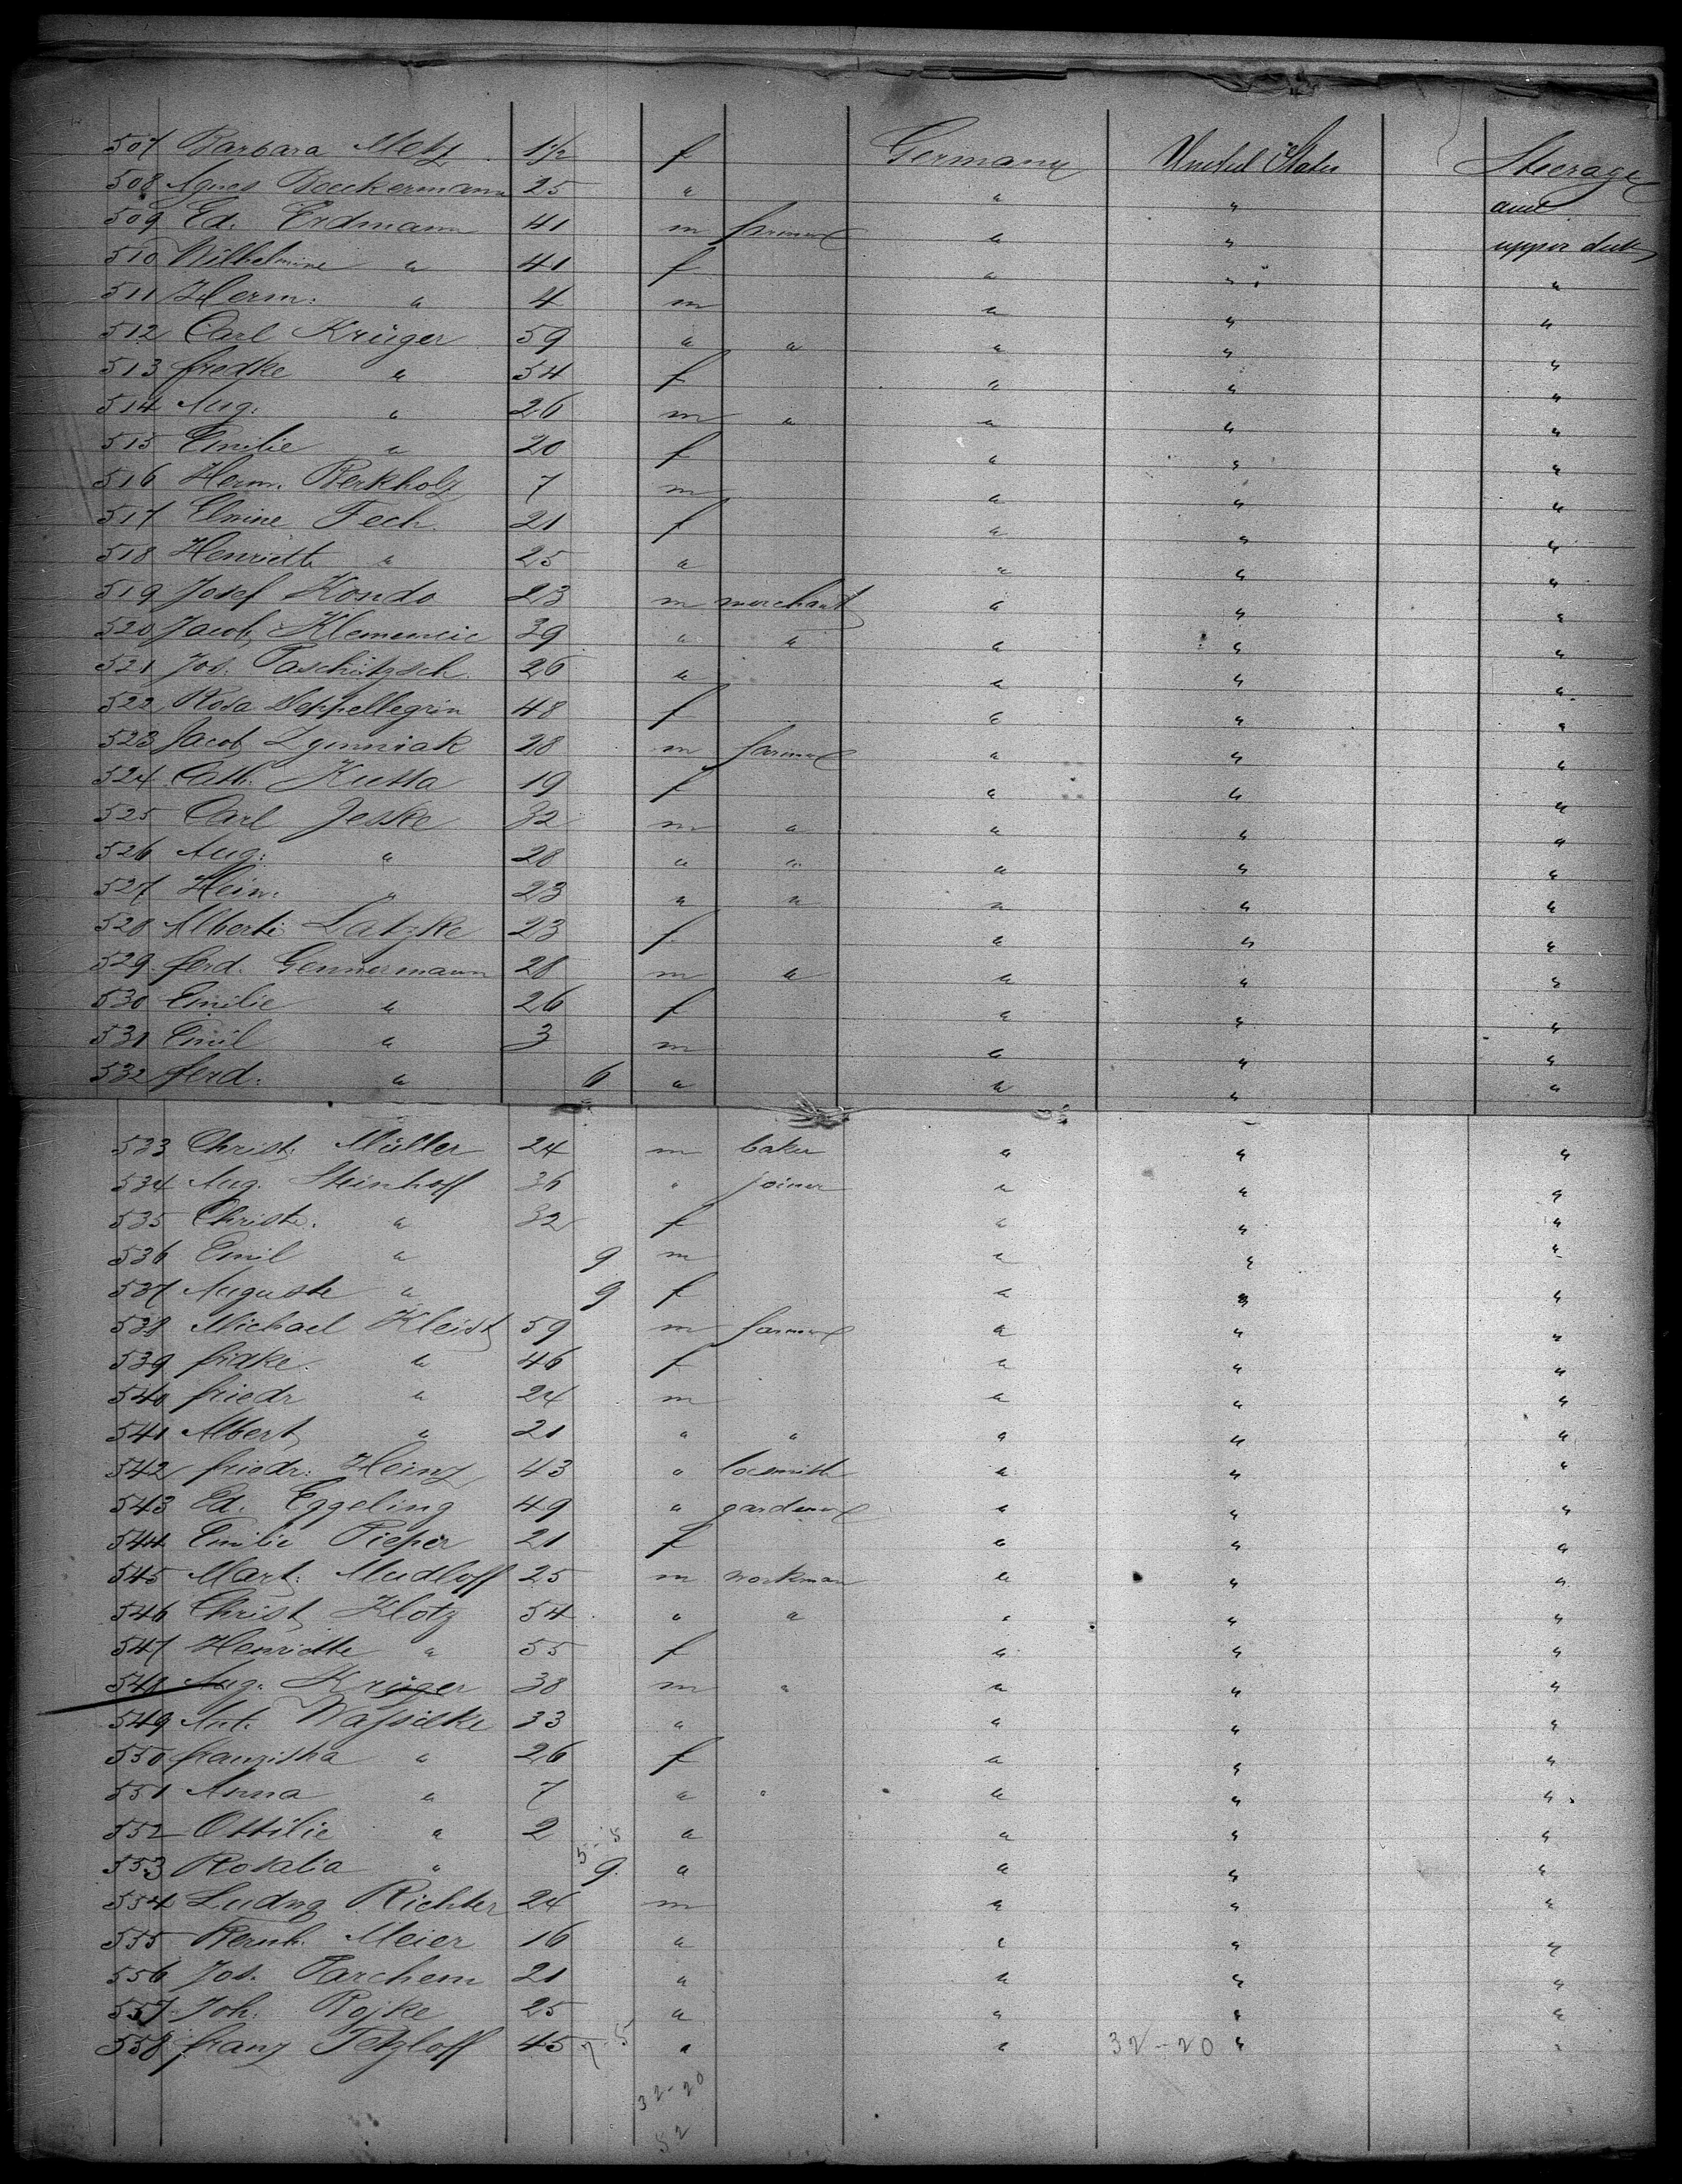 507 Barbara Metz 1 1/2 f Germany United States Steerage
508 Agnes Boeckermann 25 " " " and
509 Ed. Erdmann 41 m farmer " " upper deck
510 Wilhelmine " 41 f " " "
511 Herm: " 4 m " " "
512 Carl Krüger 59 " " " " "
513 fredke " 54 f " " "
514 Aug. " 26 m " " " "
515 Emilie " 20 f " " "
516 Herm. Berkholz 7 m " " "
517 Elmine Fech 21 f " " "
518 Henriette " 25 " " " "
519 Josef Kondo 23 m merchant " " "
520 Jacob Klemencic 39 " " " " "
521 Jos. Taschützsch 26 " " " "
522 Rosa 48 f " " "
523 Jacob 28 m farmer " " "
524 Cath. Kutta 19 f " " "
525 Carl Jeske 32 m " " " "
526 Aug: " 28 " " " " "
527 Hein: " 23 " " " " "
528 Alberti: Latzke 23 f " " "
529 ferd. Gennermann 28 m " " " "
530 Emilie " 26 f " " "
531 Emil " 3 m " " "
532 ferd. " 6 " " " "
533 Christ. Müller 24 m baker " " "
534 Aug. Steinhoff 36 " joiner " " "
535 Christe. " 32 f " " "
536 Emil " 9 m " " "
537 Auguste " 9 f " " "
538 Michael Kleist 59 m farmer " " "
539 fridke. " 46 f " " "
540 friedr " 24 m " " "
541 Albert " 21 " " " " "
542 friedr: Heinz 43 " locsmith " " "
543 Ed. Eggeling 49 " gardener " " "
544 Emilie Pieper 21 f " " "
545 Mart: Mudloff 25 m workman " " "
546 Christ Klotz 54 " " " " "
547 Henriette " 55 f " " "
548 Aug. Krüger 38 m " " " "
549 Ant. Wassilke 33 " " " "
550 franziska " 26 f " " "
551 Anna " 7 " " " " "
552 Ottilie " 2 " " " "
5-5
553 Rosalia " 9. " " " "
554 Ludwg Richter 24 m " " "
555 Bernh. Meier 16 " " " "
556 Jos. Parchem 21 " " " "
557 Joh. Rojke 25 " " " "
558 franz Tetzloff 45 7-5 " " 32-20 " "
32-20
52